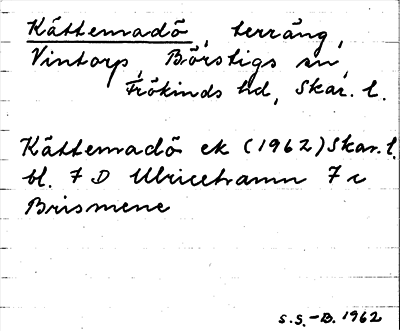 Kättenradö, terräng,
Vintorp, Börstigs sn,
Frökinds hd, Skar. l.
Kättenradö ek (1962) Skar. l.
bl. 7 D Ulricehamn 7 c
Brismene
S.S.-B. 1962